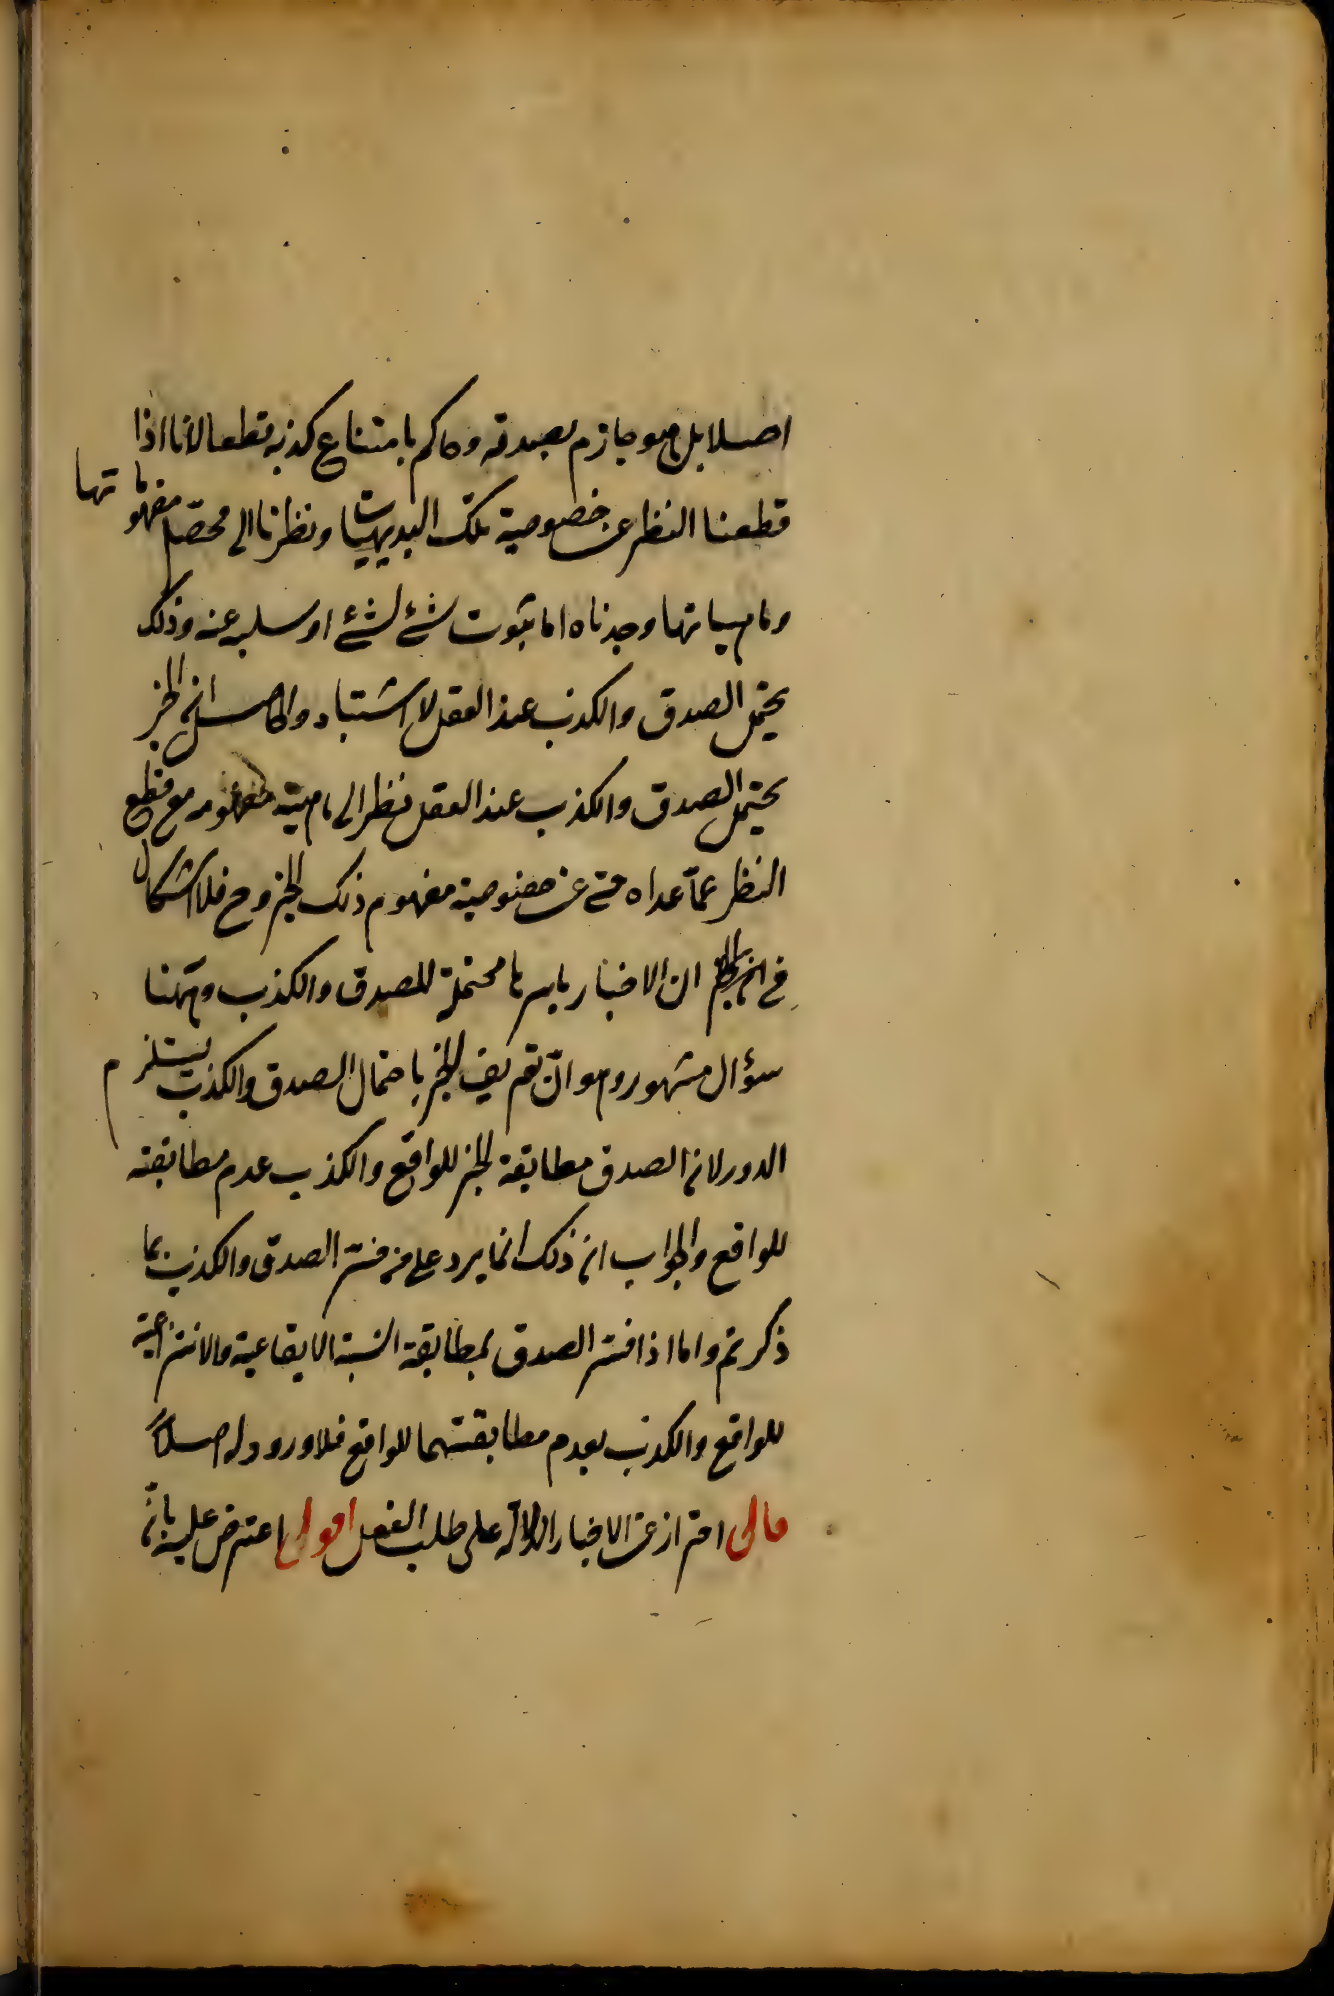 اصلا بل هو جازم بصدقه وحاكم بامتناع كذبه قطعا لانا اذا
قطعنا النظر عن خصوصية تلك البديهيات ونظرنا الى محصل مفهوماتها
وماهياتها وجدناه اما ثبوت شئ لشئ او سلبه عنه وذلك
يحتمل الصدق والكذب عند العقل لا اشتباه والحاصل ان الخبر
يحتمل الصدق والكذب عند العقل نظرا الى ماهية مفهومه مع قطع
النظر عمّا عداه حتى عن خصوصية مفهوم ذلك الخبر وح فلا اشكال
في ان الاخبار باسرها محتملة للصدق والكذب وههنا
سؤال مشهور وهو انّ تعريف الخبر باحتمال الصدق والكذب يستلزم
الدور لان الصدق مطابقة الخبر للواقع والكذب عدم مطابقته
للواقع والجواب ان ذلك انما يرد على من فسّر الصدق والكذب بما
ذكرتم واما اذا فسّر الصدق بمطابقة النسبة الايقاعية والانتزاعية
للواقع والكذب بعدم مطابقتهما للواقع فلا ورود له اصلاً
قال احتراز عن الاخبار الدالة على طلب الفعل اقول اعترض عليه بانّ